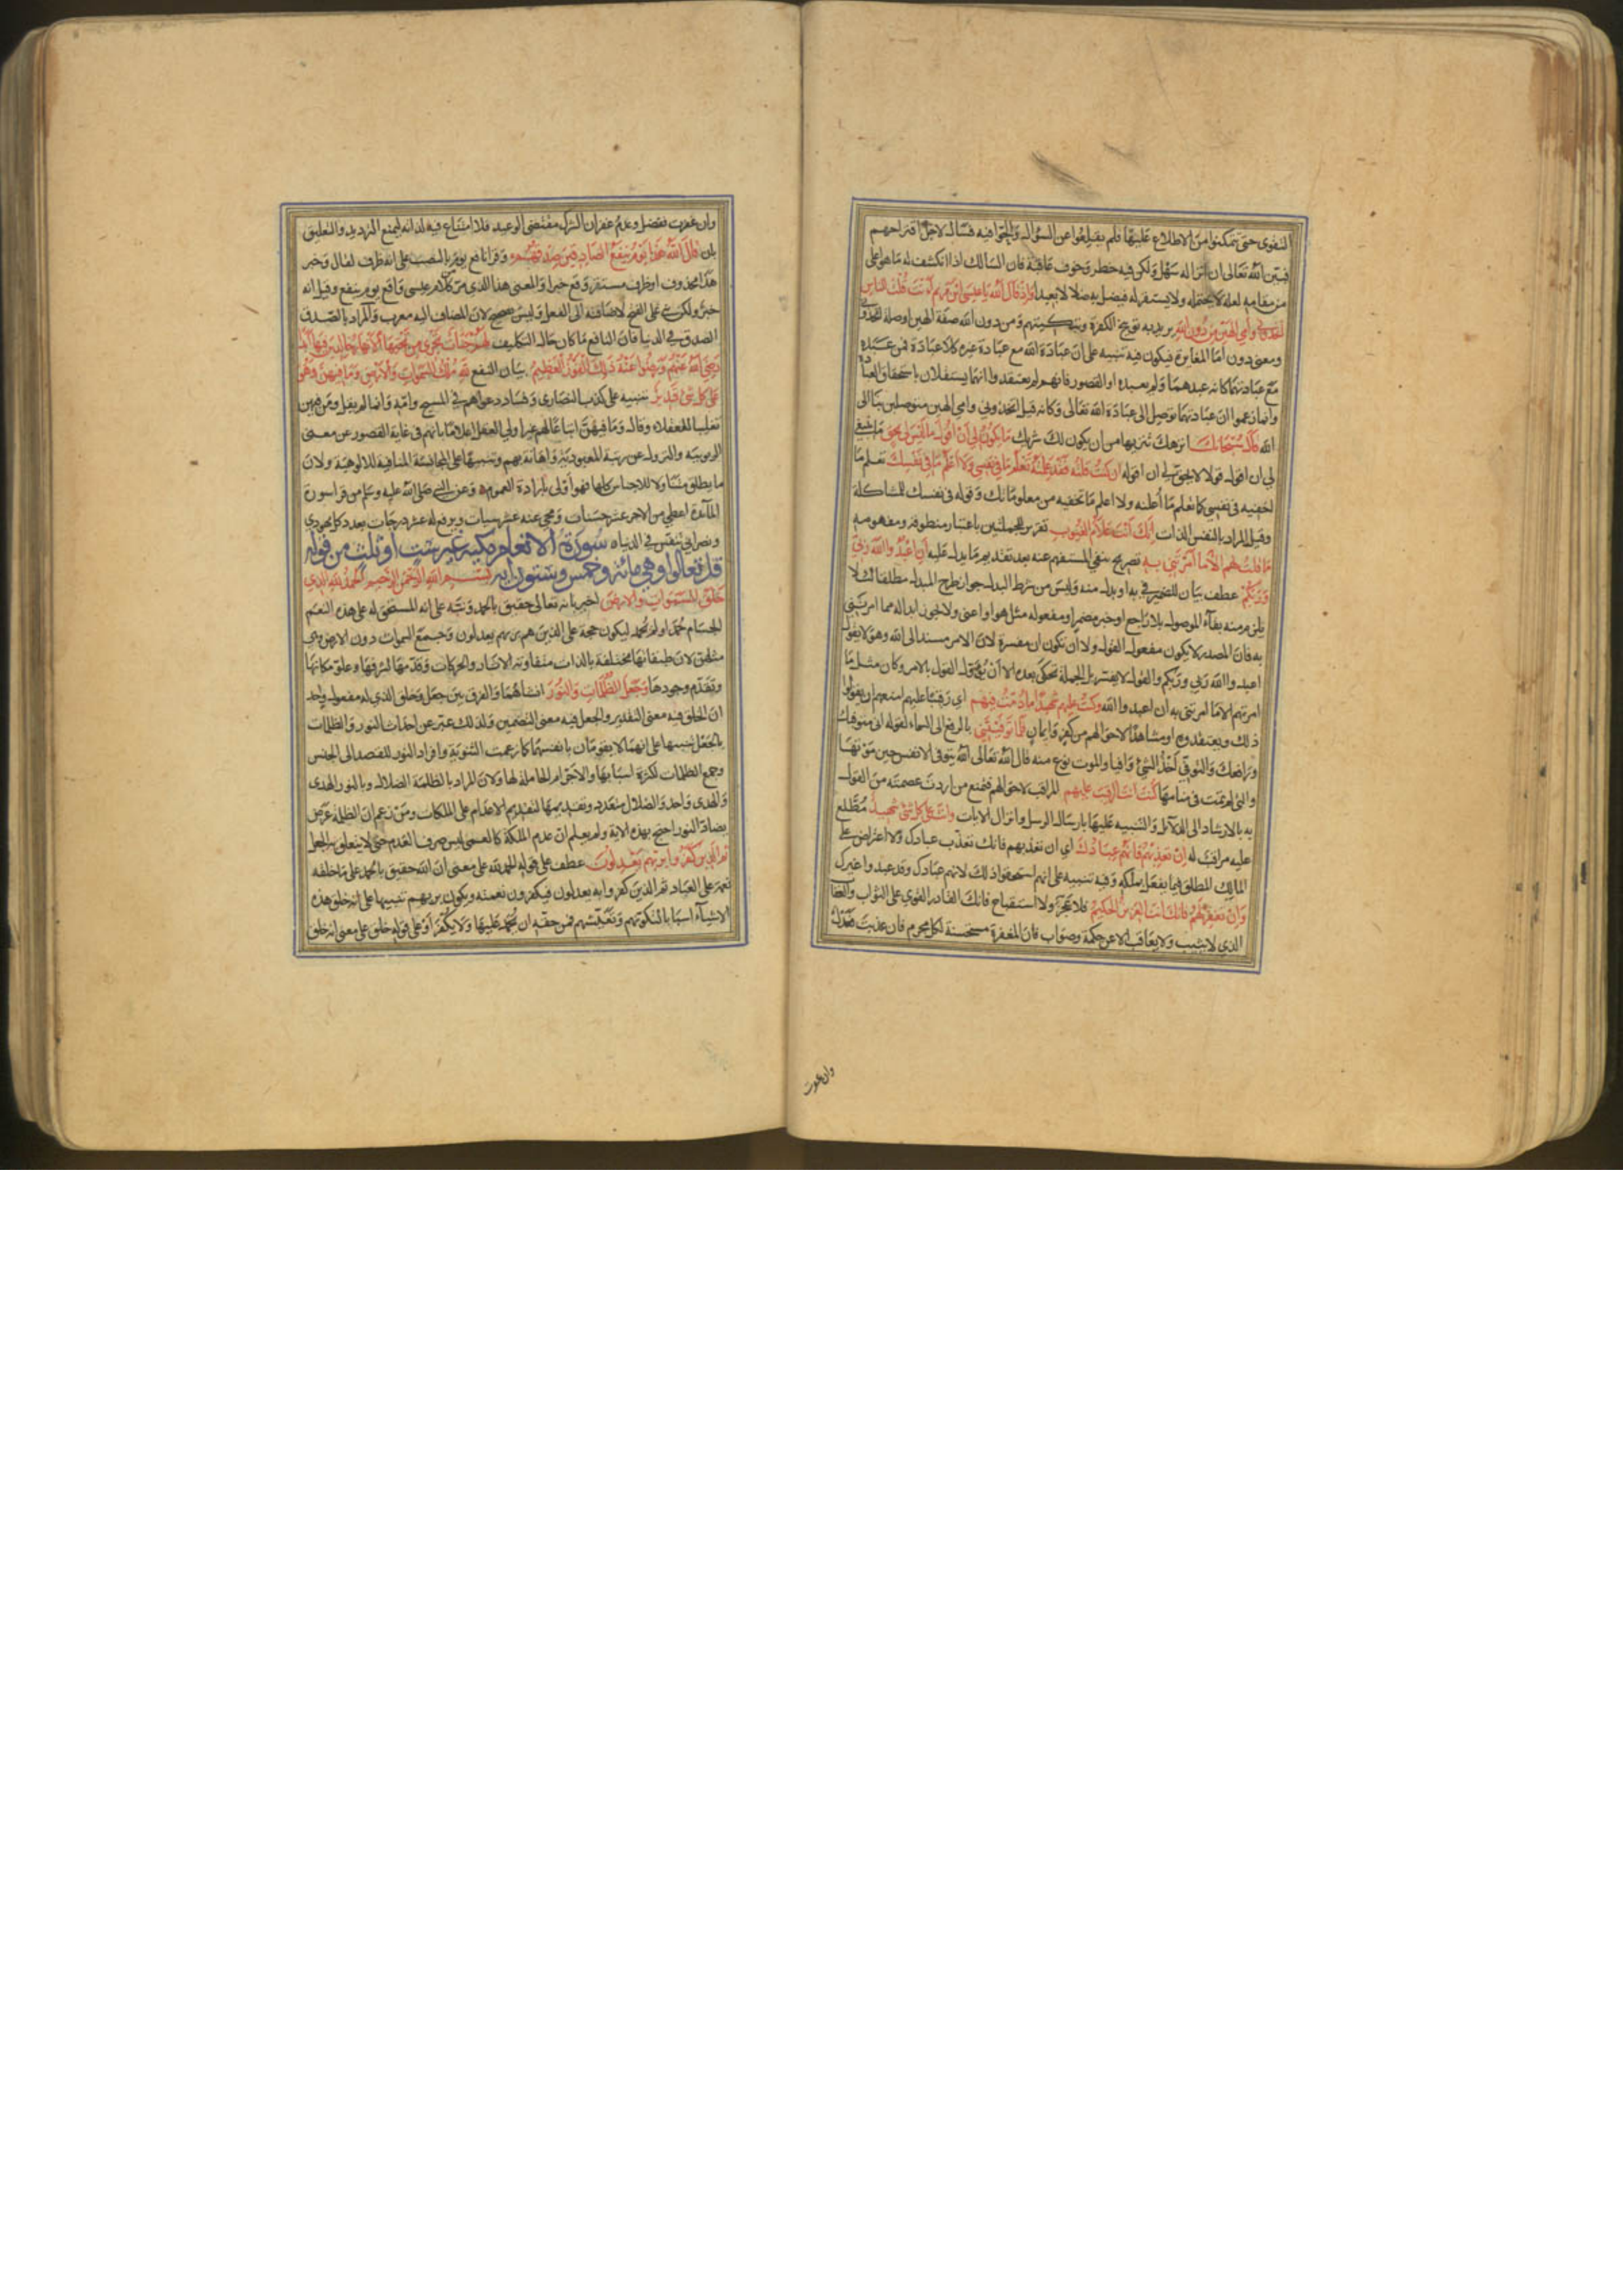 التقوى حتى يتمكنوا من الاطلاع عليها فلم يقلعوا عن السؤال والحوا فيه فسال لاجل اقتراحهم
فبين الله تعالى ان انزاله سهل ولكن فيه خطر وخوف عاقبة فان السالك اذا انكشف له ما هو اعلى
من مقامه لعله لا يحتمله ولا يستقر له فيضل به ضلالا بعيدا واذ قال الله يا عيسى ابن مريم ءانت قلت للناس
اتخذوني وامي الهين من دون الله يريد به توبيخ الكفرة وتبكيتهم ومن دون الله صفة الهين او صلة اتخذوني
ومعنى دون اما المغايرة فيكون فيه تنبيه على ان عبادة الله مع عبادة غيره كلا عبادة فمن عبده
مع عبادتهما كانه عبدهما ولم يعبده او القصور فانهم لم يعتقدوا انهما يستقلان باستحقاق العبادة
وانما زعموا ان عبادتهما توصل الى عبادة الله تعالى وكانه قيل اتخذوني وامي الهين متوصلين بنا الى
الله قال سبحانك انزهك تنزيها من ان يكون لك شريك ما يكون لي ان اقول ما ليس لي بحق ما ينبغي
لي ان اقول قولا لا يحق لي ان اقوله ان كنت قلته فقد علمته تعلم ما في نفسي ولا اعلم ما في نفسك تعلم ما
اخفيه في نفسي كما تعلم ما اعلنه ولا اعلم ما تخفيه من معلوماتك وقوله في نفسك للمشاكلة
وقيل المراد بالنفس الذات انك انت علام الغيوب تقرير للجملتين باعتبار منطوقه ومفهومه
ما قلت لهم الا ما امرتني به تصريح بنفي المستفهم عنه بعد تقديم ما يدل عليه ان اعبدوا الله ربي
وربكم عطف بيان للضمير في به او بدل منه وليس من شرط البدل جواز طرح المبدل مطلقا لئلا
يلزم منه بقاء الموصول بلا راجع او خبر مضمر او مفعوله مثل هو او اعني ولا يجوز ابداله مما امرتني
به فان المصدر لا يكون مفعول القول ولا ان تكون ان مفسرة لان الامر مسند الى الله وهو لا يقول
اعبدوا الله ربي وربكم والقول لا يفسر بل الجملة تحكى بعده الا ان يؤول القول بالامر وكان مثل ما
امرتهم الا ما امرتني به ان اعبدوا الله وكنت عليهم شهيدا ما دمت فيهم اي رقيبا عليهم امنعهم ان يقولوا
ذلك ويعتقدوه او مشاهدا لاحوالهم من كفر وايمان فلما توفيتني بالرفع الى السماء لقوله اني متوفيك
ورافعك والتوفي اخذ الشئ وافيا والموت نوع منه قال الله تعالى الله يتوفى الانفس حين موتها
والتي لم تمت في منامها كنت انت الرقيب عليهم المراقب لاحوالهم فتمنع من اردت عصمته من القول
به بالارشاد الى الدلائل والتنبيه عليها بارسال الرسل وانزال الايات وانت على كل شئ شهيد مطلع
عليه مراقب له ان تعذبهم فانهم عبادك اي ان تعذبهم فانك تعذب عبادك ولا اعتراض على
المالك المطلق فيما يفعل بملكه وفيه تنبيه على انهم استحقوا ذلك لانهم عبادك وقد عبدوا غيرك
وان تغفر لهم فانك انت العزيز الحكيم فلا عجز ولا استقباح فانك القادر القوي على الثواب والعقاب
الذي لا يثيب ولا يعاقب الا عن حكمة وصواب فان المغفرة مستحسنة لكل مجرم فان عذبت فعدل
وان غفرت
وان غفرت ففضل وعدم غفران الشرك مقتضى الوعيد فلا امتناع فيه لذاته ليمنع الترديد والتعليق
بان قال الله هذا يوم ينفع الصادقين صدقهم وقرا نافع يوم بالنصب على انه ظرف لقال وخبر
هذا محذوف او ظرف مستقر وقع خبرا والمعنى هذا الذي من كلام عيسى واقع يوم ينفع وقيل انه
خبر ولكن بني على الفتح لاضافته الى الفعل وليس بصحيح لان المضاف اليه معرب والمراد بالصدق
الصدق في الدنيا فان النافع ما كان حال التكليف لهم جنات تجري من تحتها الانهار خالدين فيها ابدا
رضي الله عنهم ورضوا عنه ذلك الفوز العظيم بيان للنفع لله ملك السموات والارض وما فيهن وهو
على كل شئ قدير تنبيه على كذب النصارى وفساد دعواهم في المسيح وامه وانما لم يقل ومن فيهن
تغليبا للعقلاء وقال وما فيهن اتباعا لهم غير اولي العقل اعلاما بانهم في غاية القصور عن معنى
الربوبية والنزول عن رتبة المعبودية واهانة بهم وتنبيها على المجانسة المنافية للالوهية ولان
ما يطلق متناولا للاجناس كلها فهو اولى بارادة العموم وعن النبي صلى الله عليه وسلم من قرا سورة
المائدة اعطي من الاجر عشر حسنات ومحي عنه عشر سيات ورفع له عشر درجات بعدد كل يهودي
ونصراني يتنفس في الدنيا سورة الانعام مكية غير ست او ثلث من قوله
قل تعالوا وهي مائة وخمس وستون اية بسم الله الرحمن الرحيم الحمد لله الذي
خلق السموات والارض اخبر بانه تعالى حقيق بالحمد ونبه على انه المستحق له على هذه النعم
الجسام حمد او لم يحمد ليكون حجة على الذين هم بربهم يعدلون وجمع السموات دون الارض وهي
مثلهن لان طبقاتها مختلفة بالذات متفاوتة الاثار والحركات وقدمها لشرفها وعلو مكانها
وتقدم وجودها وجعل الظلمات والنور انشاهما والفرق بين جعل وخلق الذي له مفعول واحد
ان الخلق فيه معنى التقدير والجعل فيه معنى التضمين ولذلك عبر عن احداث النور والظلمات
بالجعل تنبيها على انهما لا يقومان بانفسهما كما زعمت الثنوية وافراد النور للقصد الى الجنس
وجمع الظلمات لكثرة اسبابها والاجرام الحاملة لها ولان المراد بالظلمة الضلال وبالنور الهدى
والهدى واحد والضلال متعدد وتقديمها لتقديم الاعدام على الملكات ومن زعم ان الظلمة عرض
يضاد النور احتج بهذه الاية ولم يعلم ان عدم الملكة كالعمى ليس صرف العدم حتى لا يتعلق به الجعل
ثم الذين كفروا بربهم يعدلون عطف على قوله الحمد لله على معنى ان الله حقيق بالحمد على ما خلقه
نعمة على العباد ثم الذين كفروا به يعدلون فيكفرون نعمته ويكون بربهم تنبيها على انه خلق هذه
الاشياء اسبابا لتكونهم وتعيشهم فمن حقه ان يحمد عليها ولا يكفر او على قوله خلق على معنى انه خلق